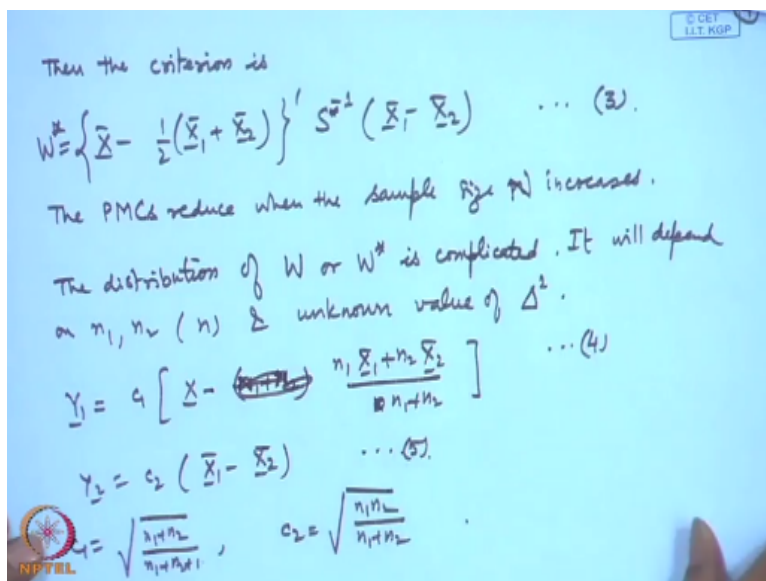 © CET
I.I.T. KGP
Then the criterion is
W* = { X̄ - 1/2 (X̄₁ + X̄₂) }′ S⁻¹ ( X̄₁ - X̄₂ ) ... (3).
The PMCs reduce when the sample size N increases.
The distribution of W or W* is complicated. It will depend
on n₁, n₂ (n) & unknown value of Δ².
Y₁ = c₁ [ X - (n₁ X̄₁ + n₂ X̄₂)/(n₁+n₂) ] ... (4)
Y₂ = c₂ ( X̄₁ - X̄₂ ) ... (5).
c₁ = √((n₁+n₂)/(n₁+n₂+1)), c₂ = √(n₁n₂/(n₁+n₂)).
NPTEL